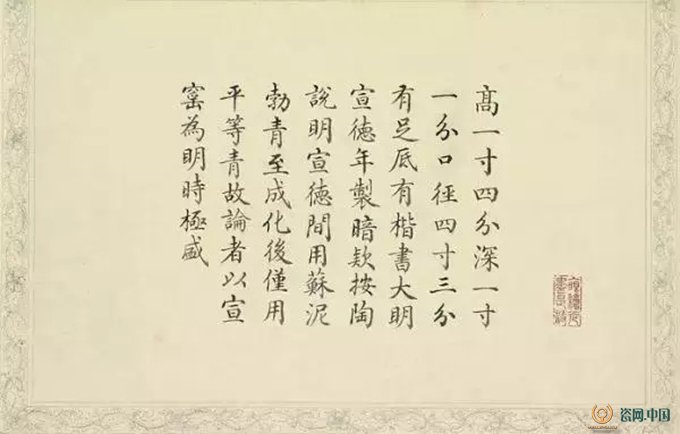 高一寸四分深一寸
一分口徑四寸三分
有足底有楷書大明
宣德年製暗款按陶
說明宣德間用蘇泥
勃青至成化後僅用
平等青故論者以宣
窰為明時極盛
瓷网.中国